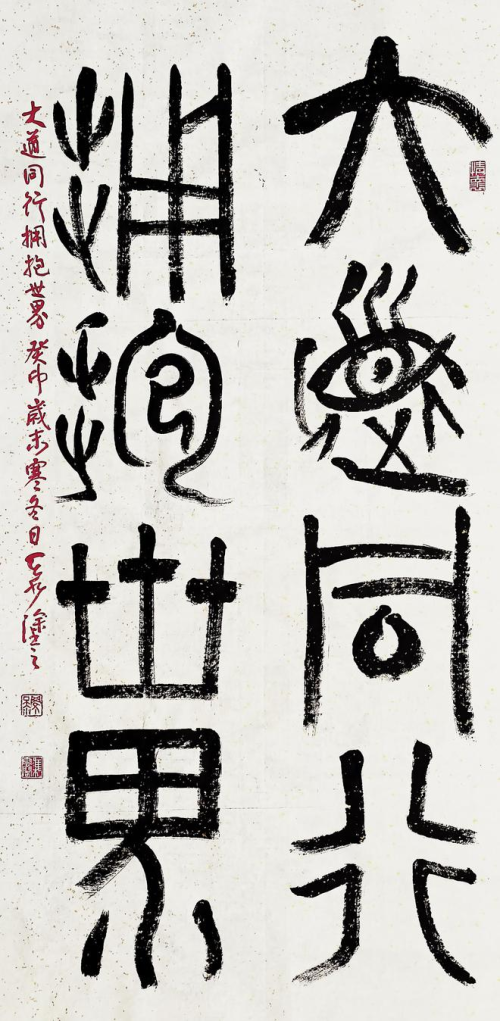 大道同行
拥抱世界
大道同行拥抱世界 癸巳歲末寒冬日